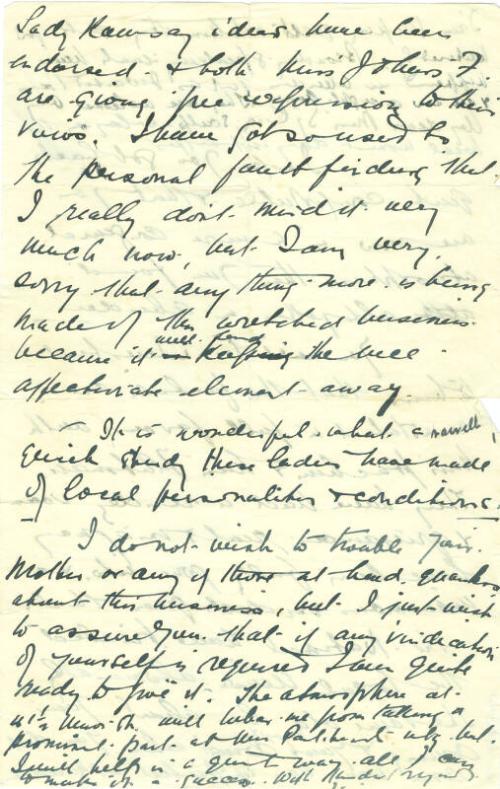 Lady Ramsay ideas have been
endorsed - & both Miss J & Miss
are giving free expression to their
views. I have got so used to
the personal fault finding that
I really don't mind it very
much now, but I am very
sorry that any thing more is being
made of this wretched business
because it will keep the
affectionate element away.
It is wonderful what a
quick study these ladies have made
of local personalities & conditions.
I do not wish to trouble your
Mother or any of those at head quarters
about this business, but I just wish
to assure you that if any vindication
of yourself is required I am quite
ready to give it. The atmosphere at
will debar me from taking a
prominent part at but
I will help in a quiet way all I can
to make it a success. With kindest regards